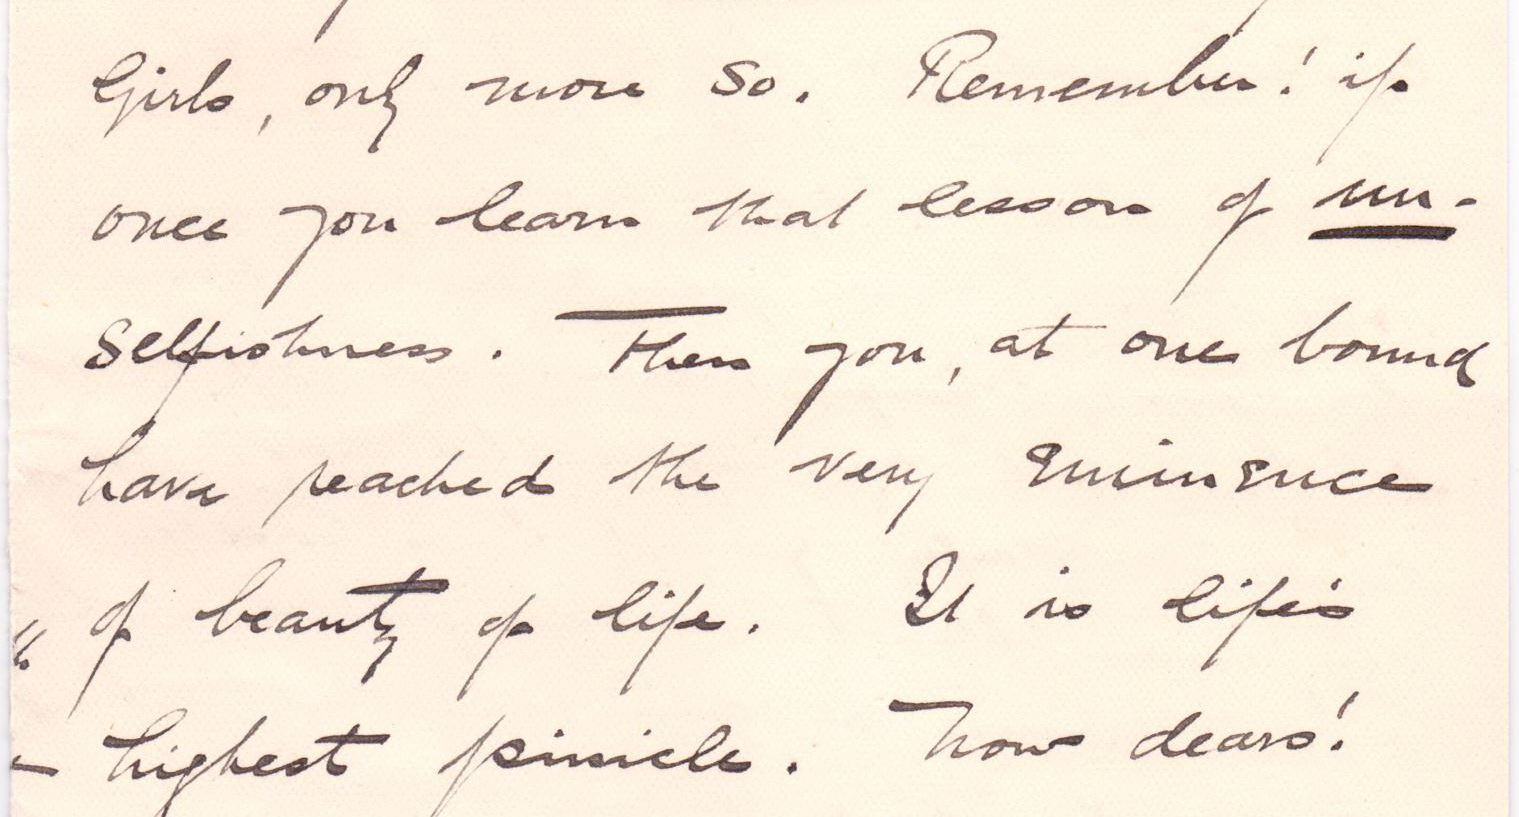 Girls, only more so. Remember! if
once you learn that lesson of un-
selfishness. Then you, at one bound
have reached the very eminence
of beauty of life. It is life's
highest pinicle. Now dears!